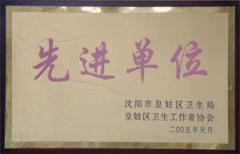 先进单位
沈阳市皇姑区卫生局
皇姑区卫生工作者协会
二00五年元月